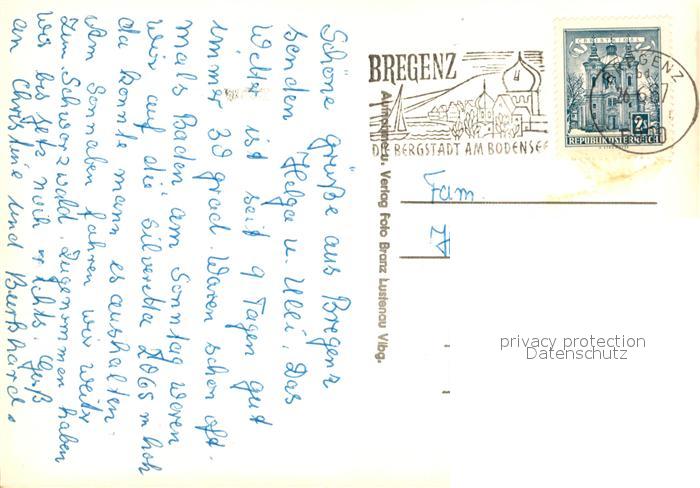 Schöne grüße aus Bregenz
senden Helga u. Ulli. Das
Wetter ist seit 9 Tagen gut
immer 30 grad. Waren schon oft-
mals Baden am Sonntag waren
wir auf die Silveretta 2065 m hoh
da konnte mann es aushalten.
Am Sonnaben fahren wir weiter
zum Schwarzwald. Zugenommen haben
wir bis jetz noch nichts. Gruß
an Christine und Burkhard.
Aufnahme u. Verlag Foto Branz Lustenau Vlbg.
BREGENZ
DIE BERGSTADT AM BODENSEE
CHRISTKINDL
2
REPUBLIK ÖSTERREICH
BREGENZ
67
Fam.
privacy protection
Datenschutz